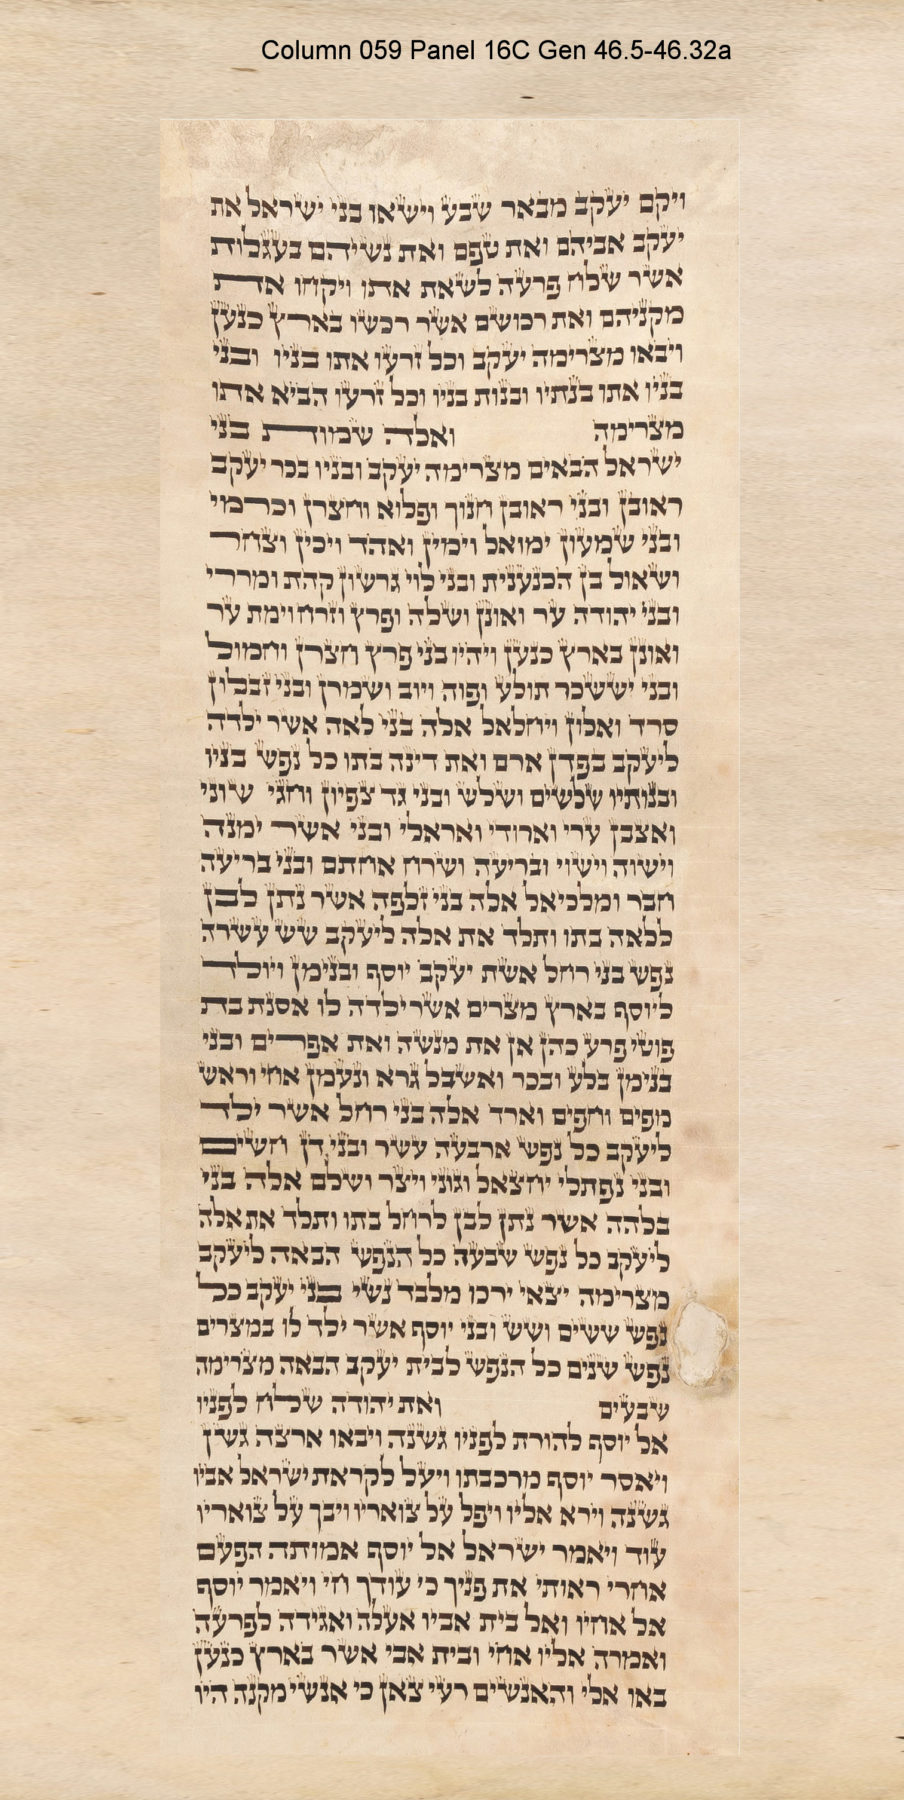 Column 059 Panel 16C Gen 46.5-46.32a
ויקם יעקב מבאר שבע וישאו בני ישראל את
יעקב אביהם ואת טפם ואת נשיהם בעגלות
אשר שלח פרעה לשאת אתו ויקחו את
מקניהם ואת רכושם אשר רכשו בארץ כנען
ויבאו מצרימה יעקב וכל זרעו אתו בניו ובני
בניו אתו בנתיו ובנות בניו וכל זרעו הביא אתו
מצרימה ואלה שמות בני
ישראל הבאים מצרימה יעקב ובניו בכר יעקב
ראובן ובני ראובן חנוך ופלוא וחצרן וכרמי
ובני שמעון ימואל וימין ואהד ויכין וצחר
ושאול בן הכנענית ובני לוי גרשון קהת ומררי
ובני יהודה ער ואונן ושלה ופרץ וזרח וימת ער
ואונן בארץ כנען ויהיו בני פרץ חצרן וחמול
ובני יששכר תולע ופוה ויוב ושמרן ובני זבלון
סרד ואלון ויחלאל אלה בני לאה אשר ילדה
ליעקב בפדן ארם ואת דינה בתו כל נפש בניו
ובנותיו שלשים ושלש ובני גד צפיון וחגי שוני
ואצבן ערי וארודי ואראלי ובני אשר ימנה
וישוה וישוי ובריעה ושרח אחתם ובני בריעה
חבר ומלכיאל אלה בני זלפה אשר נתן לבן
ללאה בתו ותלד את אלה ליעקב שש עשרה
נפש בני רחל אשת יעקב יוסף ובנימן ויולד
ליוסף בארץ מצרים אשר ילדה לו אסנת בת
פוטי פרע כהן אן את מנשה ואת אפרים ובני
בנימן בלע ובכר ואשבל גרא ונעמן אחי וראש
מפים וחפים וארד אלה בני רחל אשר ילד
ליעקב כל נפש ארבעה עשר ובני דן חשים
ובני נפתלי יחצאל וגוני ויצר ושלם אלה בני
בלהה אשר נתן לבן לרחל בתו ותלד את אלה
ליעקב כל נפש שבעה כל הנפש הבאה ליעקב
מצרימה יצאי ירכו מלבד נשי בני יעקב כל
נפש ששים ושש ובני יוסף אשר ילד לו במצרים
נפש שנים כל הנפש לבית יעקב הבאה מצרימה
שבעים ואת יהודה שלח לפניו
אל יוסף להורת לפניו גשנה ויבאו ארצה גשן
ויאסר יוסף מרכבתו ויעל לקראת ישראל אביו
גשנה וירא אליו ויפל על צואריו ויבך על צואריו
עוד ויאמר ישראל אל יוסף אמותה הפעם
אחרי ראותי את פניך כי עודך חי ויאמר יוסף
אל אחיו ואל בית אביו אעלה ואגידה לפרעה
ואמרה אליו אחי ובית אבי אשר בארץ כנען
באו אלי והאנשים רעי צאן כי אנשי מקנה היו